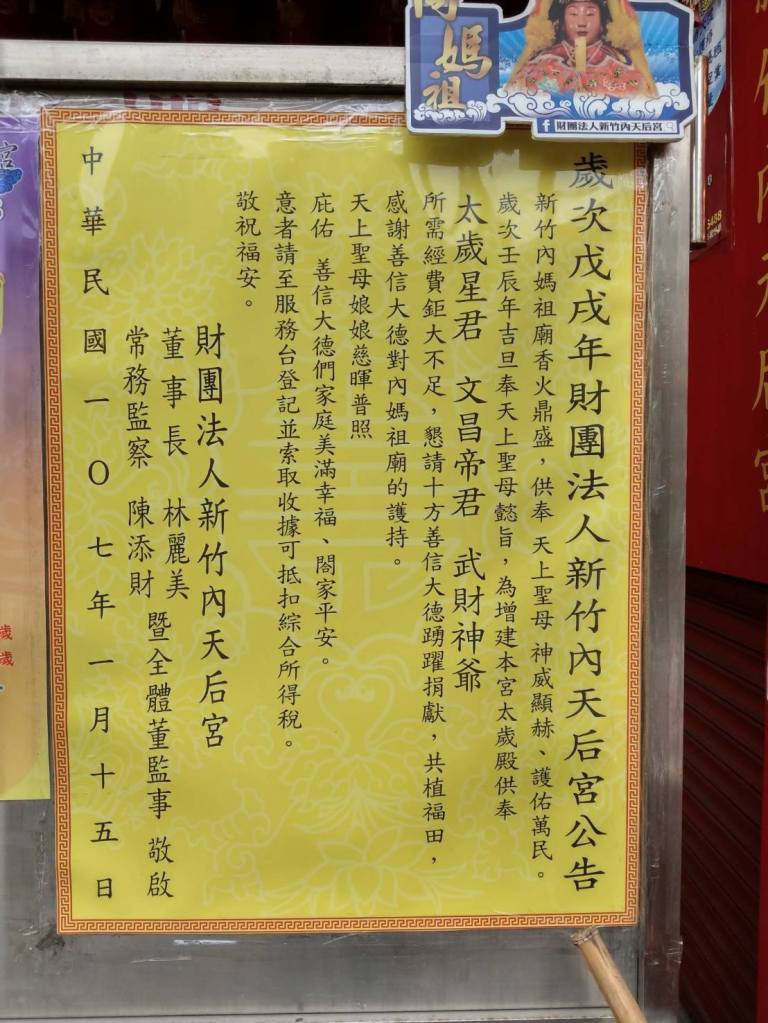 歲次戊戌年財團法人新竹內天后宮公告
新竹內媽祖廟香火鼎盛，供奉 天上聖母 神威顯赫、護佑萬民。
歲次壬辰年吉旦奉天上聖母懿旨，為增建本宮太歲殿供奉
太歲星君 文昌帝君 武財神爺
所需經費鉅大不足，懇請十方善信大德踴躍捐獻，共植福田，
感謝善信大德對內媽祖廟的護持。
天上聖母娘娘慈暉普照
庇佑 善信大德們家庭美滿幸福、閤家平安。
意者請至服務台登記並索取收據可抵扣綜合所得稅。
敬祝福安。
財團法人新竹內天后宮
董事長 林麗美
常務監察 陳添財
暨全體董監事 敬啟
中華民國一〇七年一月十五日
媽祖
財團法人新竹內天后宮